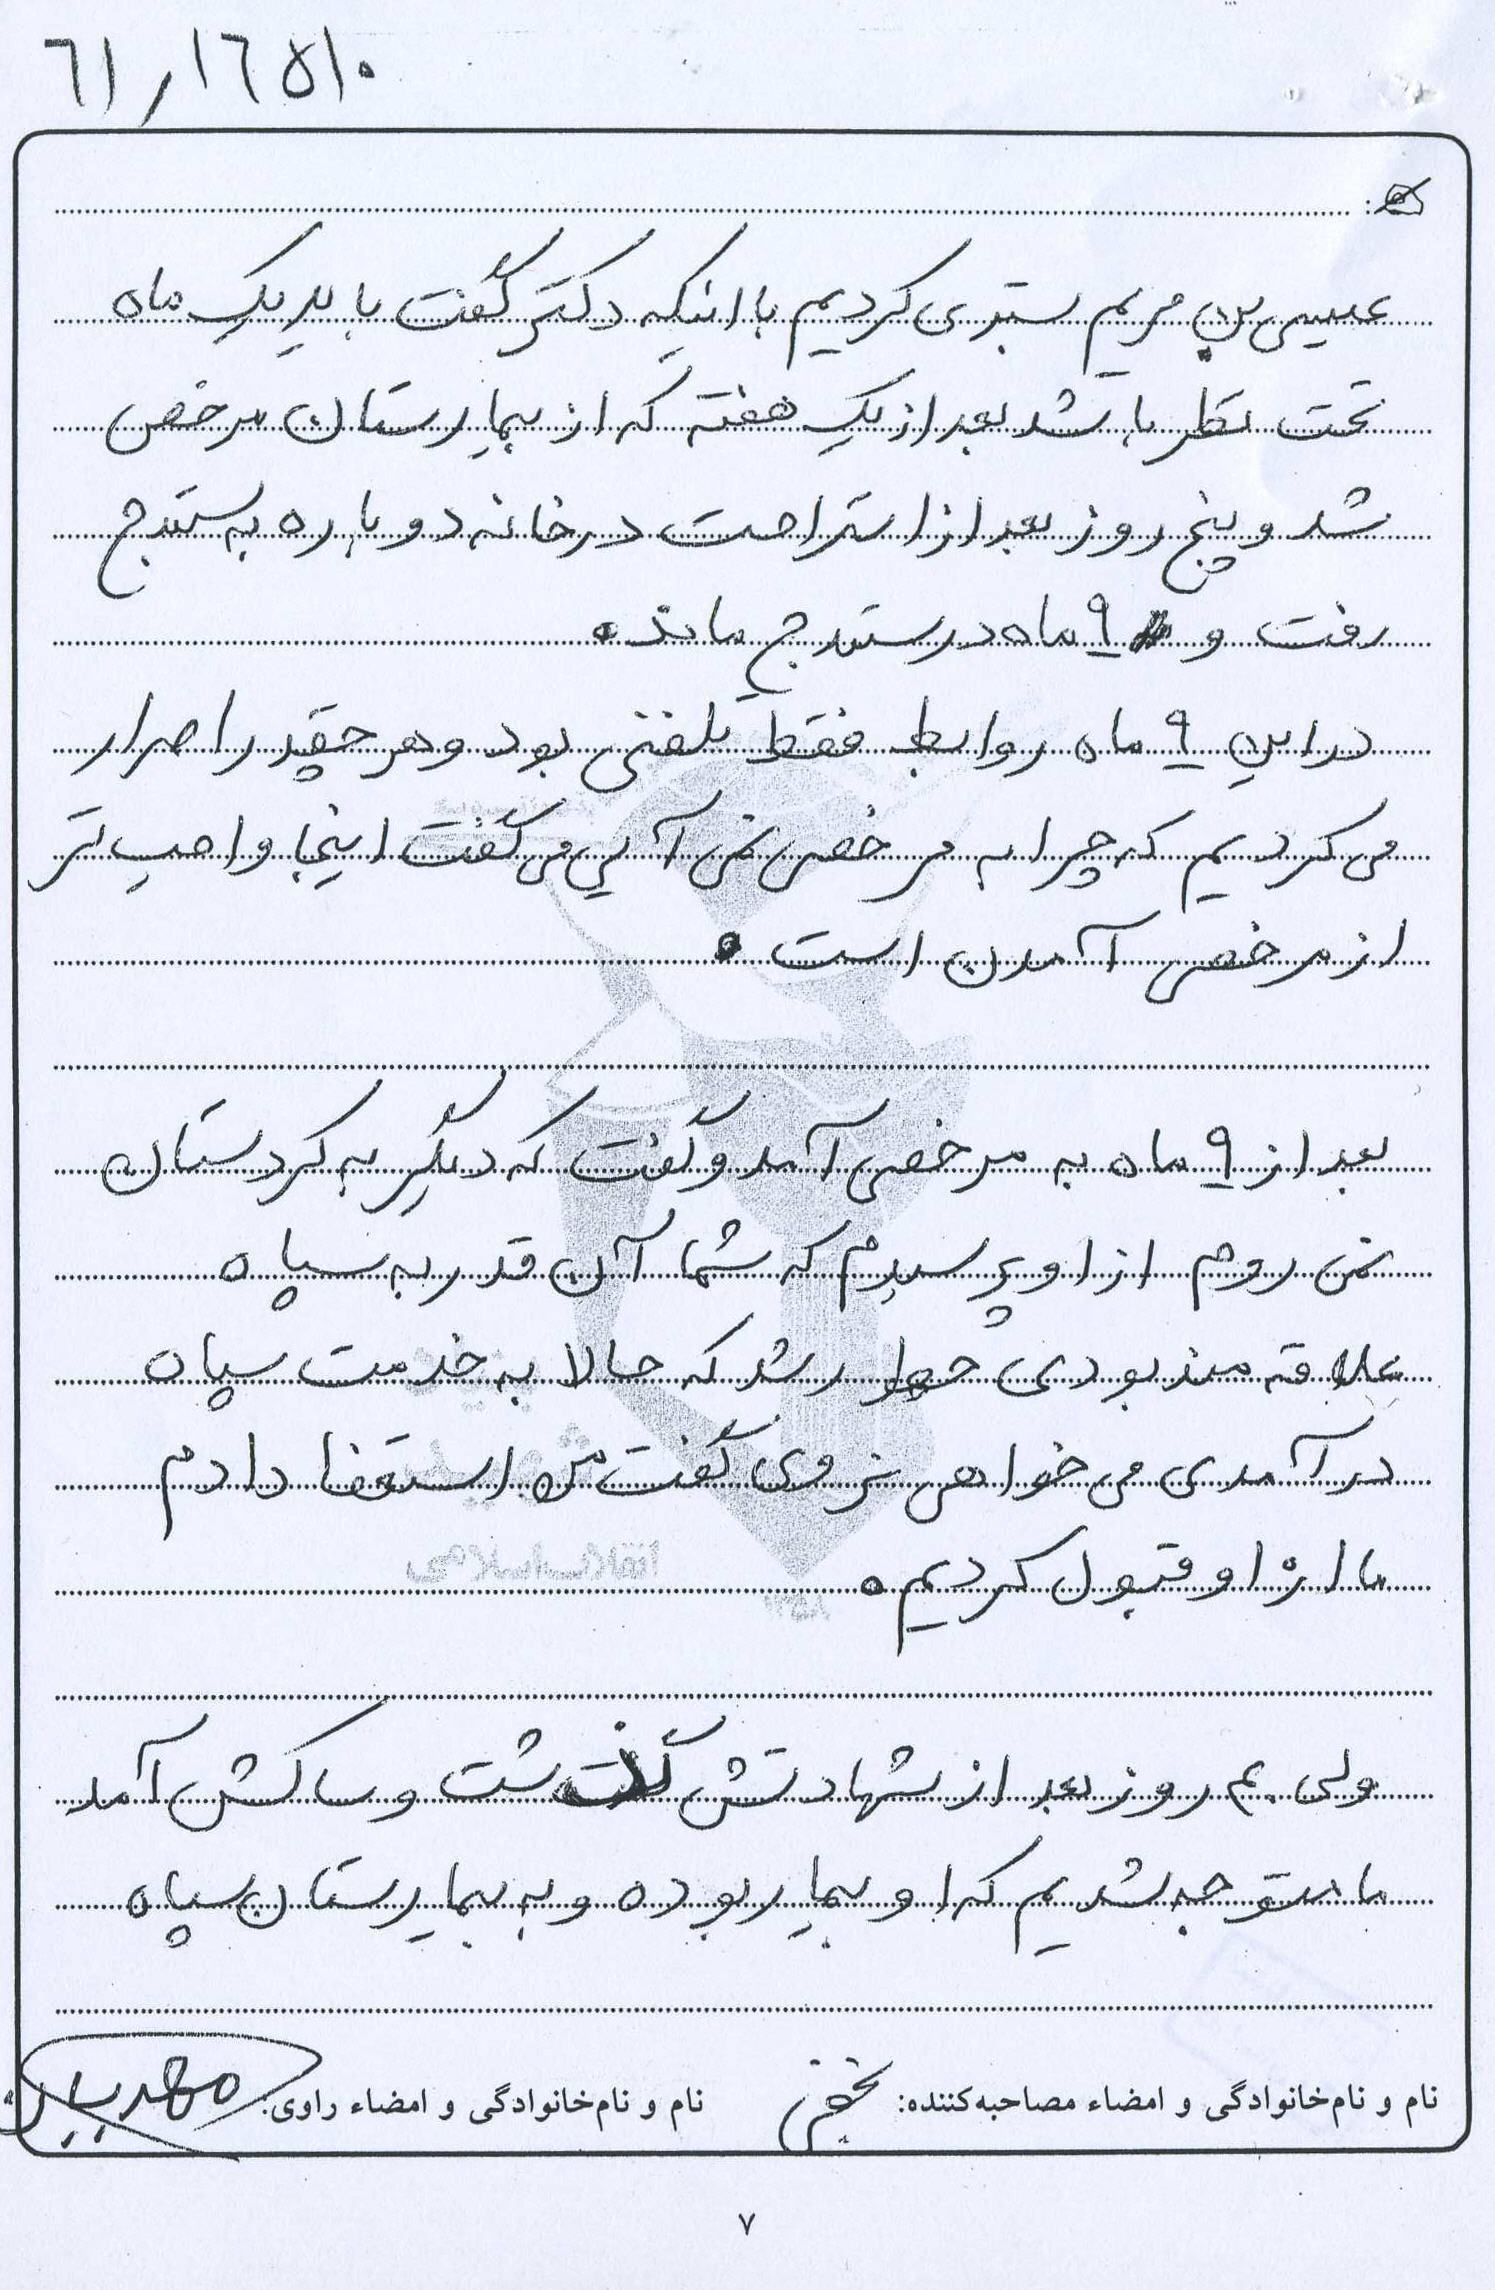 ٦١/١٦٥١٠
عیسی بن مریم بستری کردیم با اینکه دکتر گفت باید یک ماه
تحت نظر باشد بعد از یک هفته که از بیمارستان مرخص
شد و پنج روز بعد از استراحت در خانه دوباره به سنندج
رفت و ۹ ماه در سنندج ماند.
در این ۹ ماه روابط فقط تلفنی بود و هر چقدر اصرار
می کردیم که چرا به مرخصی نمی آیی می گفت اینجا واجب تر
از مرخصی آمدن است.
بعد از ۹ ماه به مرخصی آمد و گفت که دیگر به کردستان
نمی روم از او پرسیدم که شما آن قدر به سپاه
علاقه مند بودی چطور شد که حالا به خدمت سپاه
در آمدی می خواهی نروی گفت من استعفا دادم
ما از او قبول کردیم.
ولی ۴۰ روز بعد از شهادتش گذشت و ساکش آمد
ما متوجه شدیم که او بیمار بوده و به بیمارستان سپاه
نام و نام‌خانوادگی و امضاء مصاحبه‌کننده: نام و نام‌خانوادگی و امضاء راوی:
۷